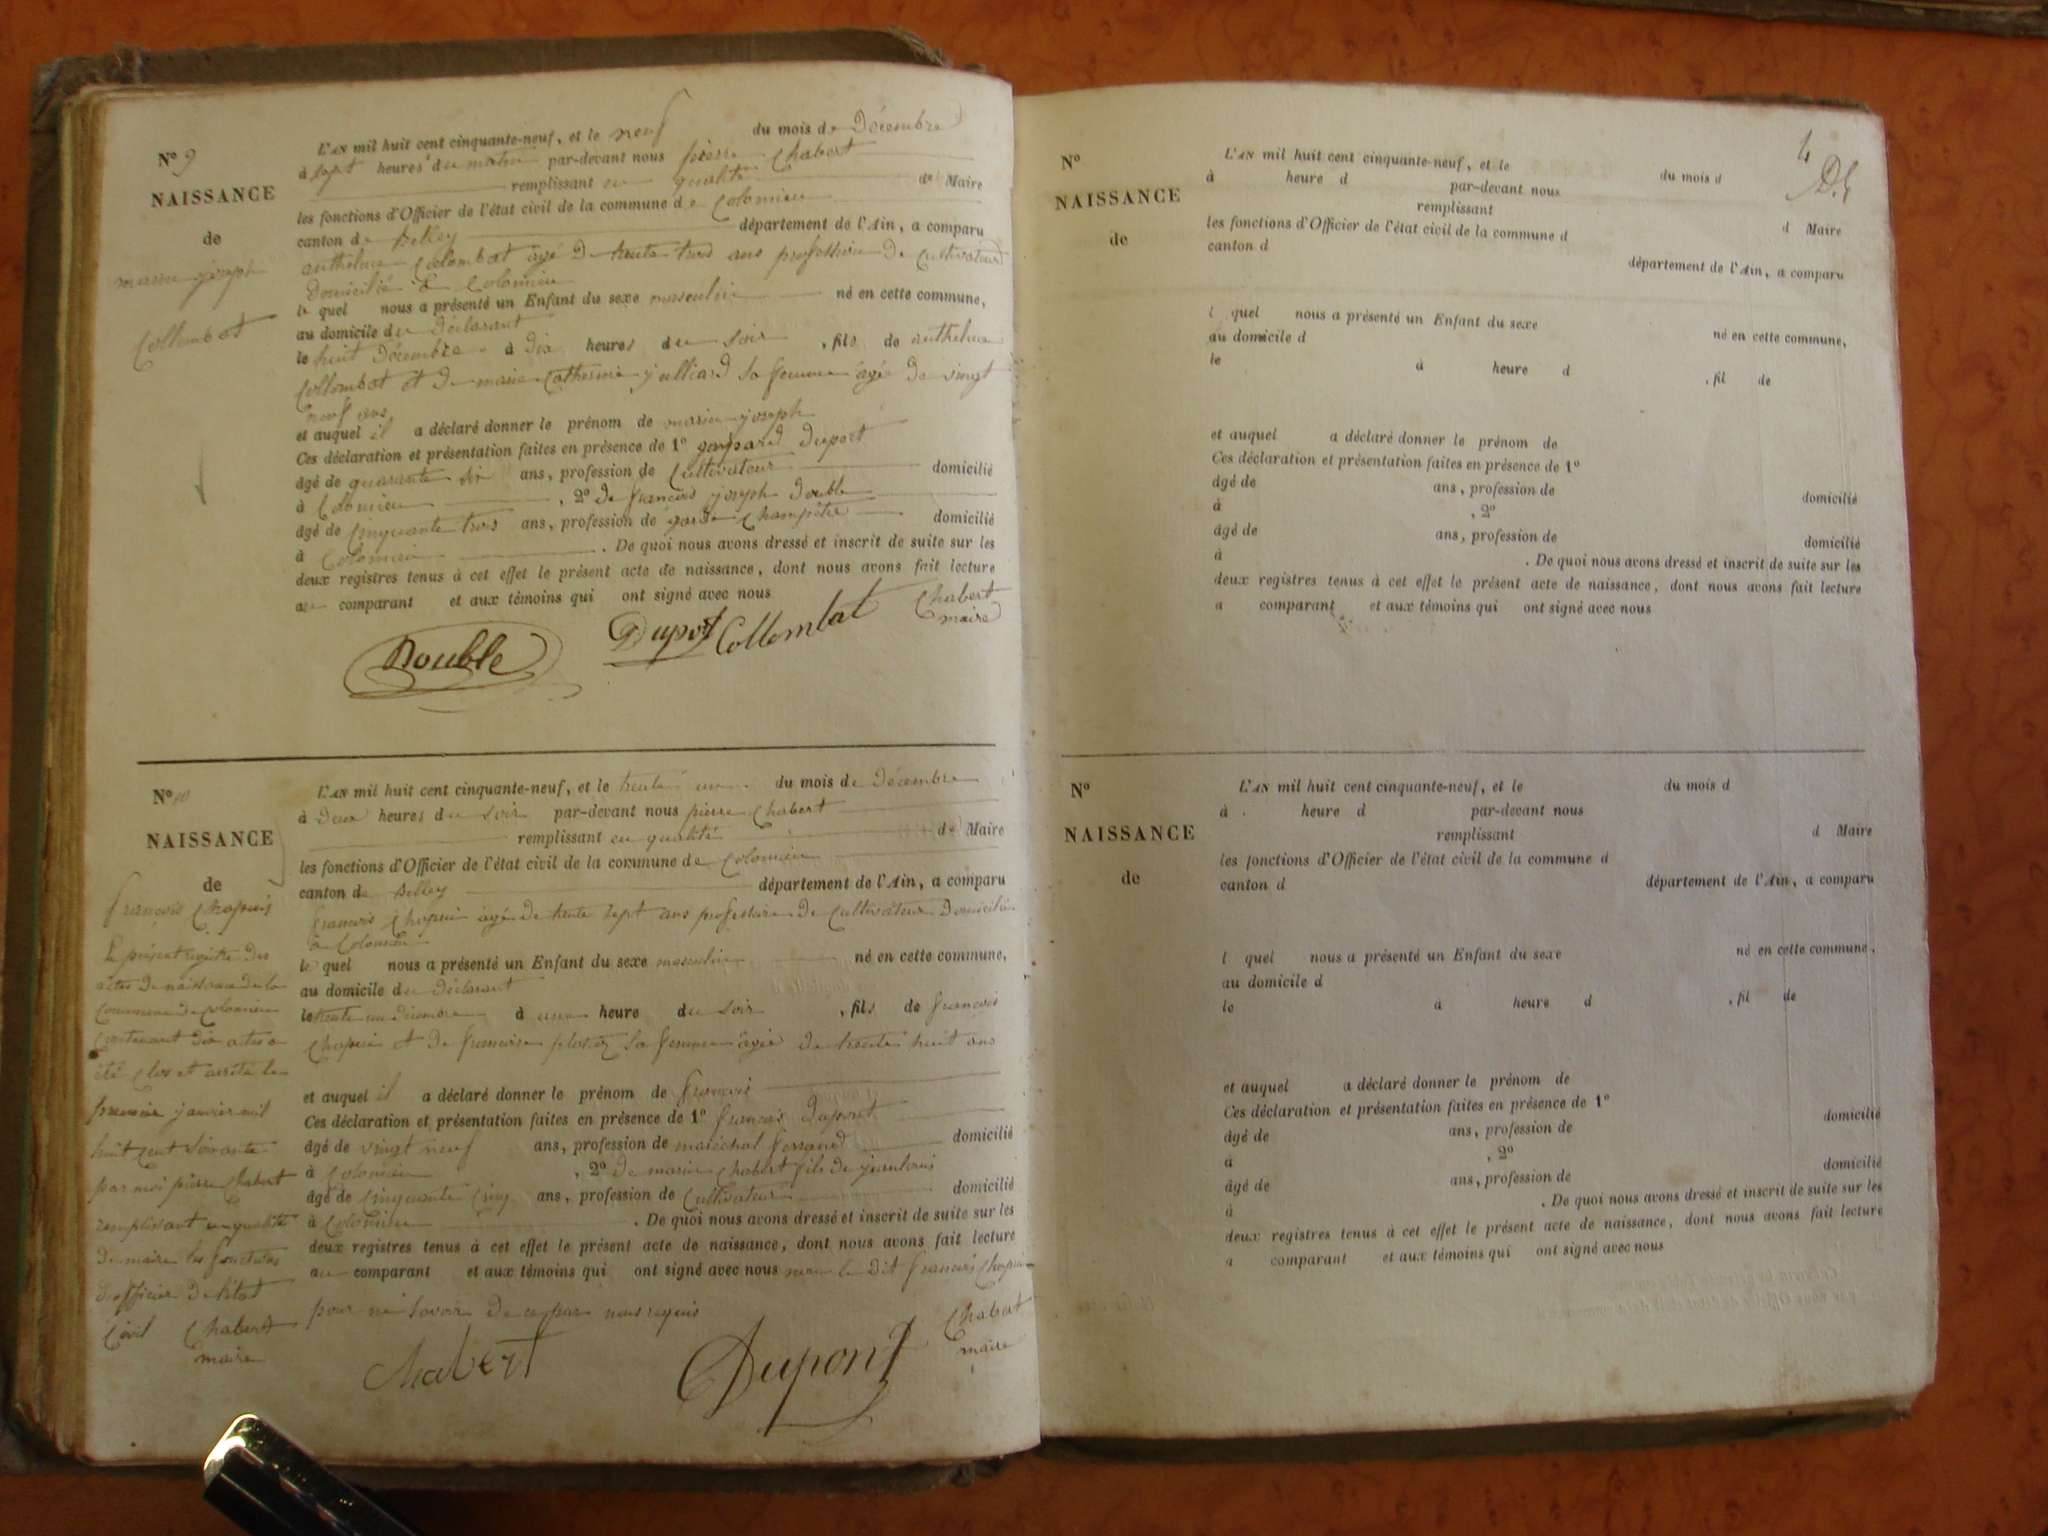 N° 9
NAISSANCE
de
marie joseph
Collombat
L'AN mil huit cent cinquante-neuf, et le neuf du mois de Décembre
à sept heures du matin par-devant nous pierre Chabert
remplissant en qualité de Maire
les fonctions d'Officier de l'état civil de la commune de Colomieu
canton de Belley département de l'Ain, a comparu
anthelme Colombat agé de trente trois ans profession de Cultivateur
Domicilié à Colomieu
le quel nous a présenté un Enfant du sexe masculin né en cette commune,
au domicile du Déclarant
le huit Décembre à dix heures du soir , fils de anthelme
Collombat et de marie Catherine julliard sa femme agée de vingt
neuf ans
et auquel il a déclaré donner le prénom de marie joseph
Ces déclaration et présentation faites en présence de 1° gaspard Duport
âgé de quarante six ans, profession de Cultivateur domicilié
à Colomieu , 2° de françois joseph Double
âgé de Cinquante trois ans, profession de garde Champêtre domicilié
à Colomieu . De quoi nous avons dressé et inscrit de suite sur les
deux registres tenus à cet effet le présent acte de naissance, dont nous avons fait lecture
au comparant et aux témoins qui ont signé avec nous
Chabert
maire
Double Duport Collombat
N° 10
NAISSANCE
de
françois Chapuis
Le présent registre des
actes de naissance de la
Commune de Colomieu
Contenant dix actes a
été clos et arrêté le
premier janvier mil
huit Cent soixante
par moi pierre Chabert
remplissant en qualité
de maire les fonctions
d'officier de l'état
Civil Chabert
maire
L'AN mil huit cent cinquante-neuf, et le trente un du mois de Décembre
à Deux heures du soir par-devant nous pierre Chabert
remplissant en qualité de Maire
les fonctions d'Officier de l'état civil de la commune de Colomieu
canton de Belley département de l'Ain, a comparu
françois Chapuis agé de trente sept ans profession de Cultivateur Domicilié
à Colomieu
le quel nous a présenté un Enfant du sexe masculin né en cette commune,
au domicile du Déclarant
le trente un décembre à une heure du soir , fils de françois
Chapuis et de françoise sa femme agée de trente huit ans
et auquel il a déclaré donner le prénom de françois
Ces déclaration et présentation faites en présence de 1° françois Dupont
âgé de vingt neuf ans, profession de maréchal ferrand domicilié
à Colomieu , 2° de marie Chabert fils de jean louis
âgé de Cinquante Cinq ans, profession de Cultivateur domicilié
à Colomieu . De quoi nous avons dressé et inscrit de suite sur les
deux registres tenus à cet effet le présent acte de naissance, dont nous avons fait lecture
au comparant et aux témoins qui ont signé avec nous non le dit françois Chapuis
pour ne savoir de ce par nous requis
Chabert
maire
Chabert Dupont
4
N°
NAISSANCE
de
L'AN mil huit cent cinquante-neuf, et le du mois d
à heure d par-devant nous
remplissant d Maire
les fonctions d'Officier de l'état civil de la commune d
canton d département de l'Ain, a comparu
l quel nous a présenté un Enfant du sexe né en cette commune,
au domicile d
le à heure d , fil de
et auquel a déclaré donner le prénom de
Ces déclaration et présentation faites en présence de 1°
âgé de ans, profession de domicilié
à , 2°
âgé de ans, profession de domicilié
à . De quoi nous avons dressé et inscrit de suite sur les
deux registres tenus à cet effet le présent acte de naissance, dont nous avons fait lecture
a comparant et aux témoins qui ont signé avec nous
N°
NAISSANCE
de
L'AN mil huit cent cinquante-neuf, et le du mois d
à heure d par-devant nous
remplissant d Maire
les fonctions d'Officier de l'état civil de la commune d
canton d département de l'Ain, a comparu
l quel nous a présenté un Enfant du sexe né en cette commune,
au domicile d
le à heure d , fil de
et auquel a déclaré donner le prénom de
Ces déclaration et présentation faites en présence de 1°
âgé de ans, profession de domicilié
à , 2°
âgé de ans, profession de domicilié
à . De quoi nous avons dressé et inscrit de suite sur les
deux registres tenus à cet effet le présent acte de naissance, dont nous avons fait lecture
a comparant et aux témoins qui ont signé avec nous